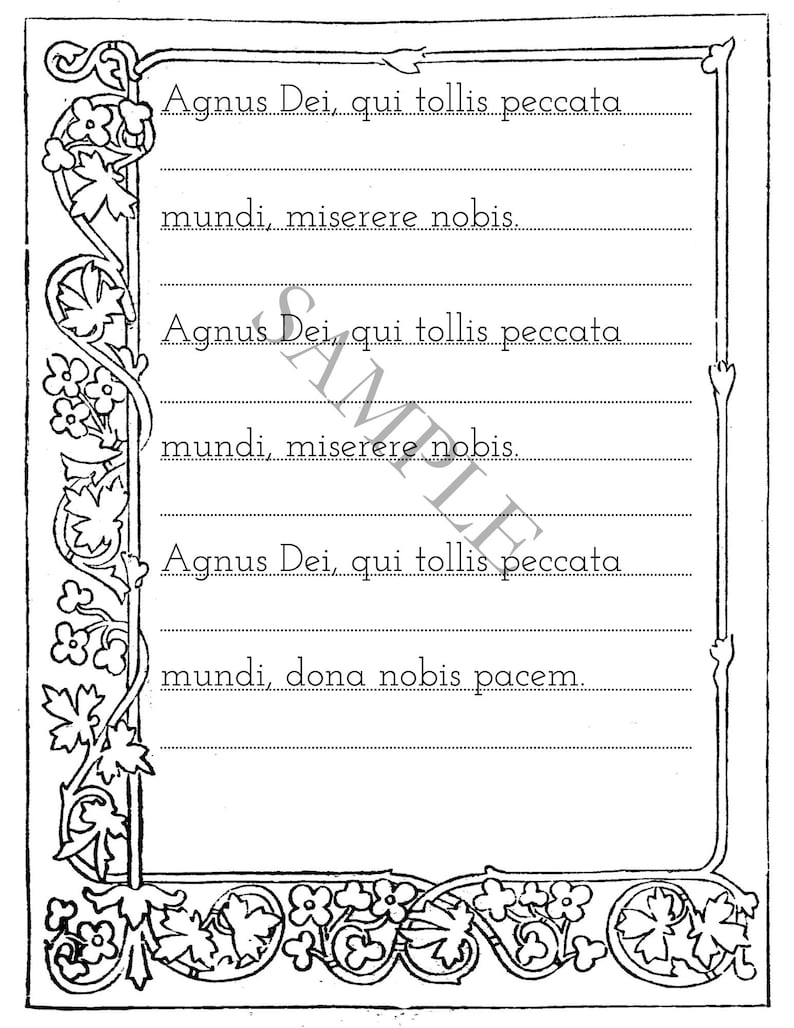 Agnus Dei, qui tollis peccata
mundi, miserere nobis.
Agnus Dei, qui tollis peccata
mundi, miserere nobis.
Agnus Dei, qui tollis peccata
mundi, dona nobis pacem.
SAMPLE